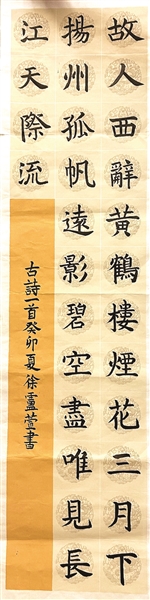 故人西辭黃鶴樓煙花三月下
揚州孤帆遠影碧空盡唯見長
江天際流
古詩一首癸卯夏徐靈萱書